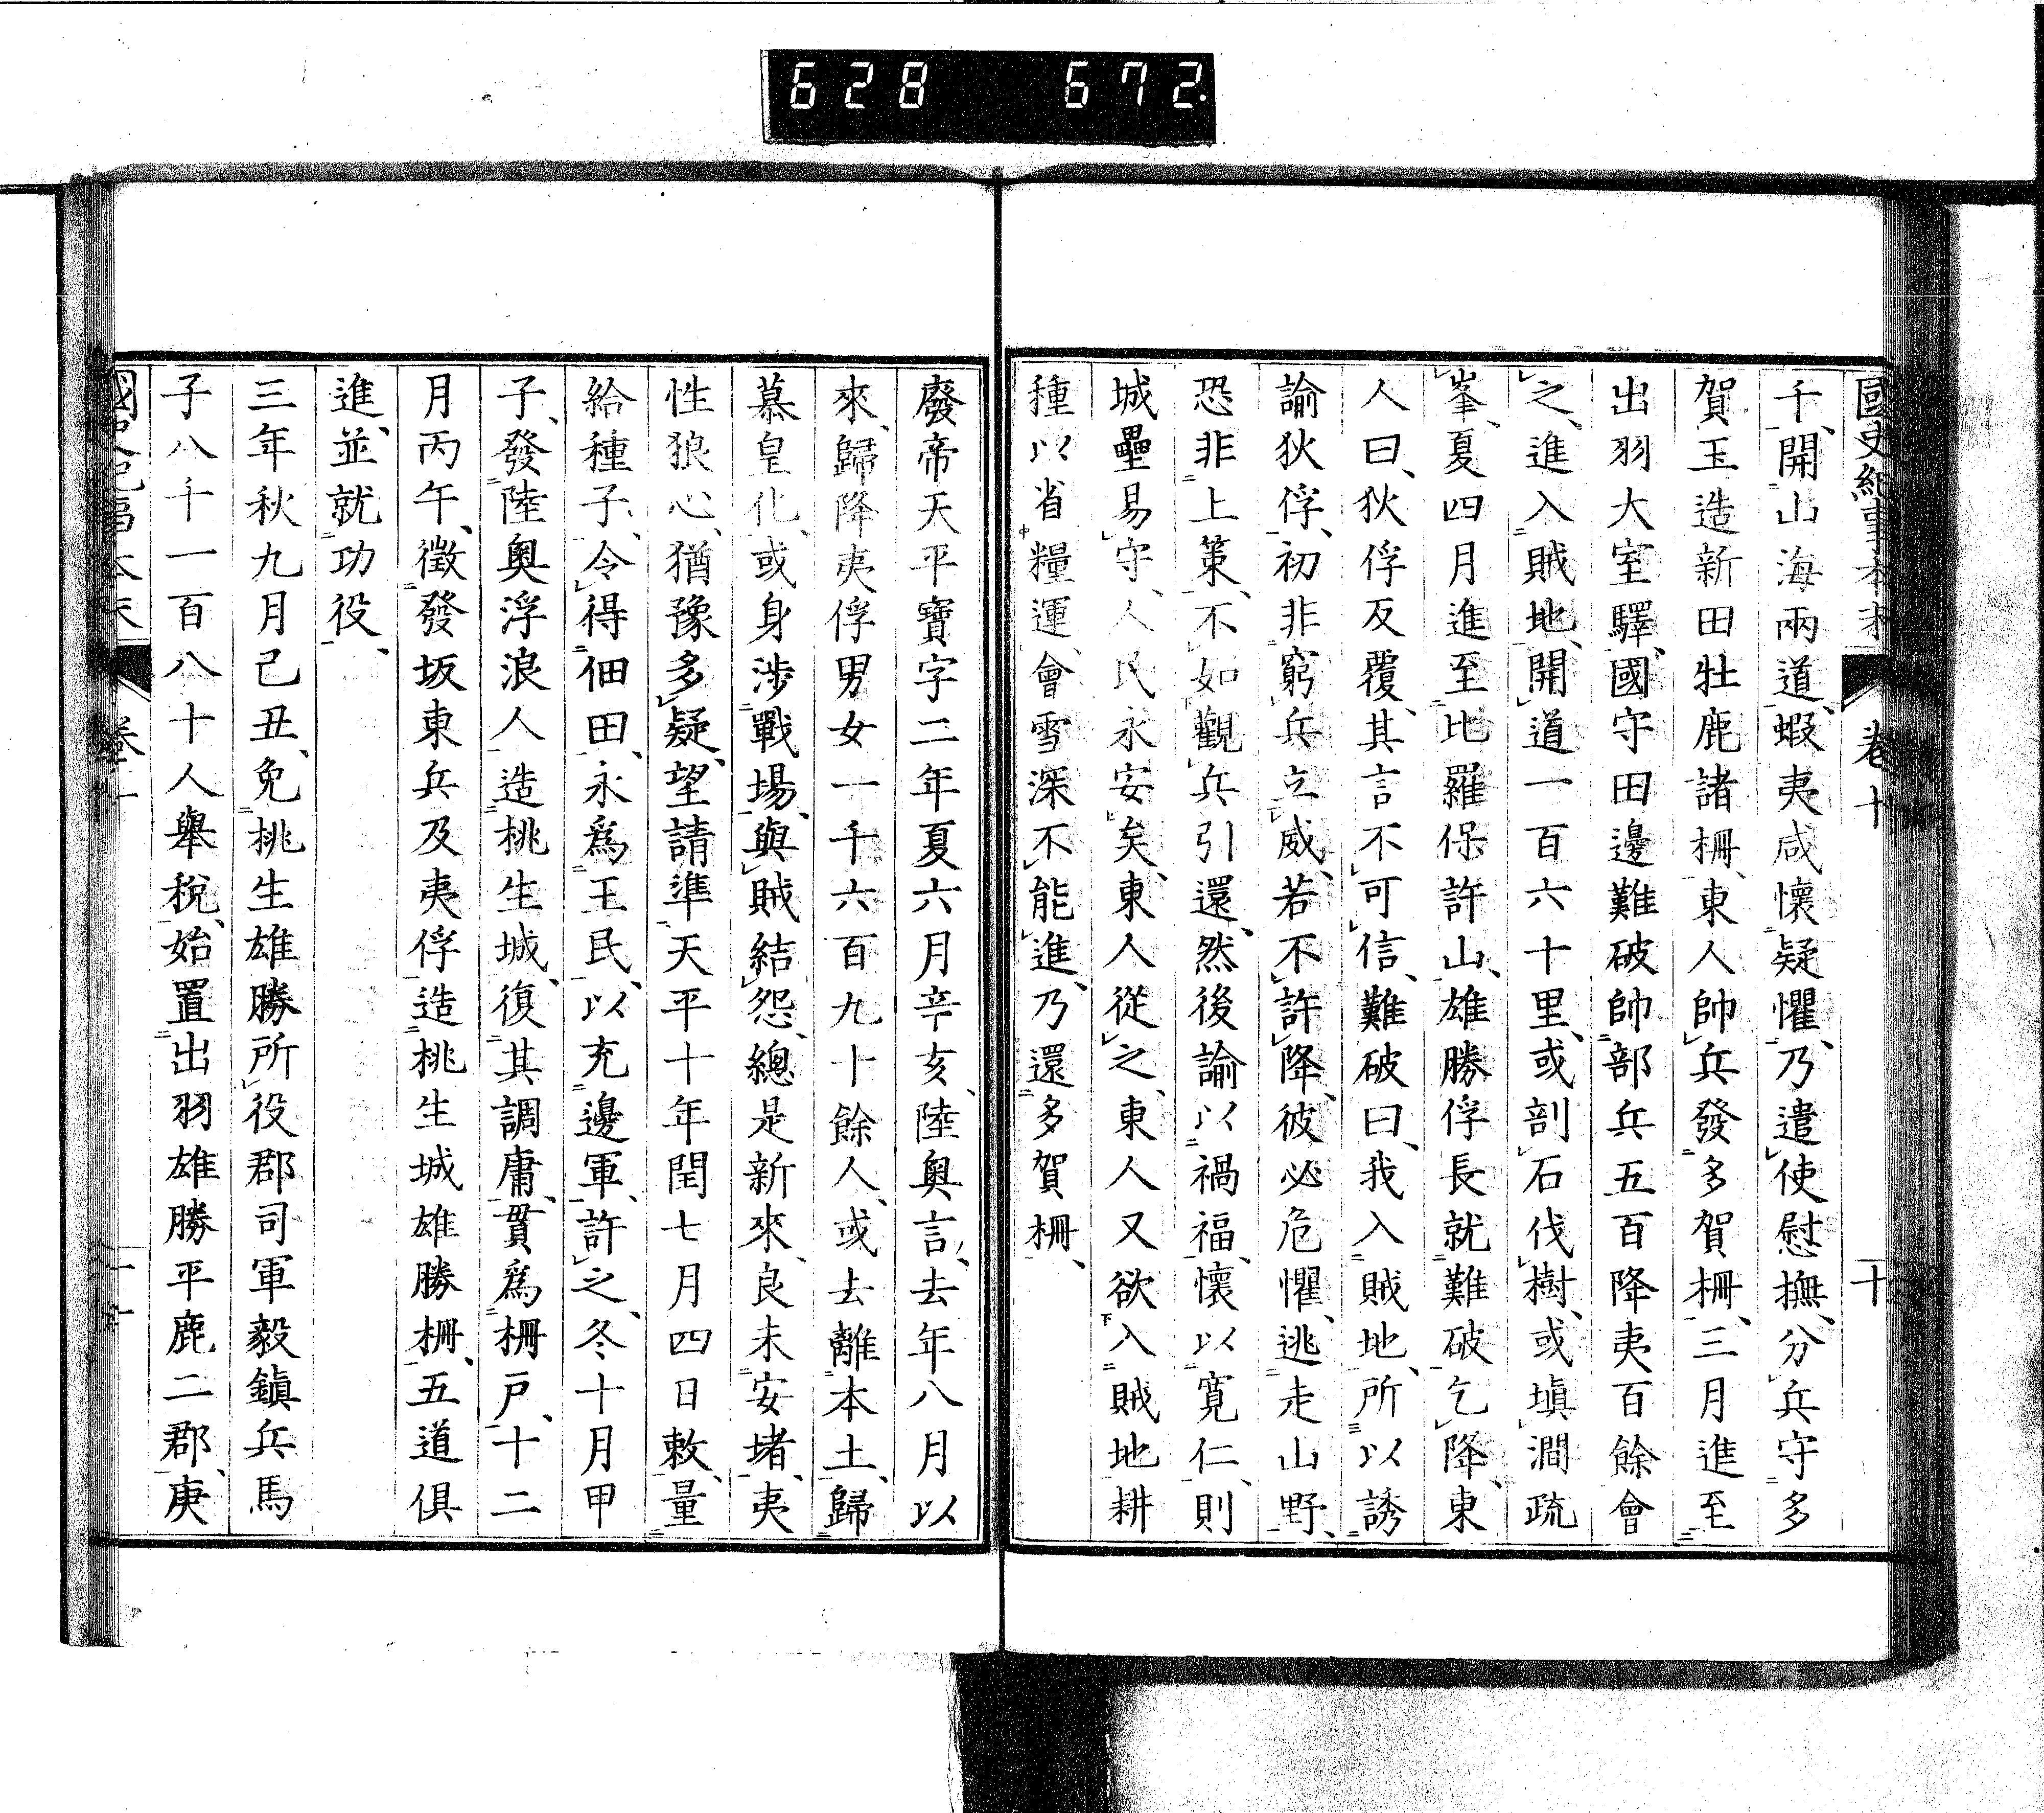 628 672.
國史紀事本末 卷十 十
千、開山海兩道、蝦夷咸懷疑懼、乃遣使慰撫、分兵守多
賀玉造新田牡鹿諸柵、東人帥兵發多賀柵、三月進至
出羽大室驛、國守田邊難破帥部兵五百降夷百餘會
之、進入賊地、開道一百六十里、或剖石伐樹、或塡澗疏
峯、夏四月進至比羅保許山、雄勝俘長就難破乞降、東
人曰、狄俘反覆、其言不可信、難破曰、我入賊地、所以誘
諭狄俘、初非窮兵立威、若不許降、彼必危懼、逃走山野、
恐非上策、不如觀兵引還、然後諭以禍福、懷以寬仁、則
城壘易守、人民永安矣、東人從之、東人又欲入賊地耕
種以省糧運、會雪深不能進、乃還多賀柵、
廢帝天平寶字二年夏六月辛亥、陸奧言、去年八月以
來、歸降夷俘男女一千六百九十餘人、或去離本土、歸
慕皇化、或身涉戰場、與賊結怨、總是新來、良未安堵、夷
性狼心、猶豫多疑、望請準天平十年閏七月四日敕、量
給種子、令得佃田、永爲王民、以充邊軍、許之、冬十月甲
子、發陸奧浮浪人造桃生城、復其調庸、貫爲柵戶、十二
月丙午、徵發坂東兵及夷俘造桃生城雄勝柵、五道俱
進、並就功役、
三年秋九月己丑、免桃生雄勝所役郡司軍毅鎭兵馬
子八千一百八十人舉稅、始置出羽雄勝平鹿二郡、庚
國史紀事本末